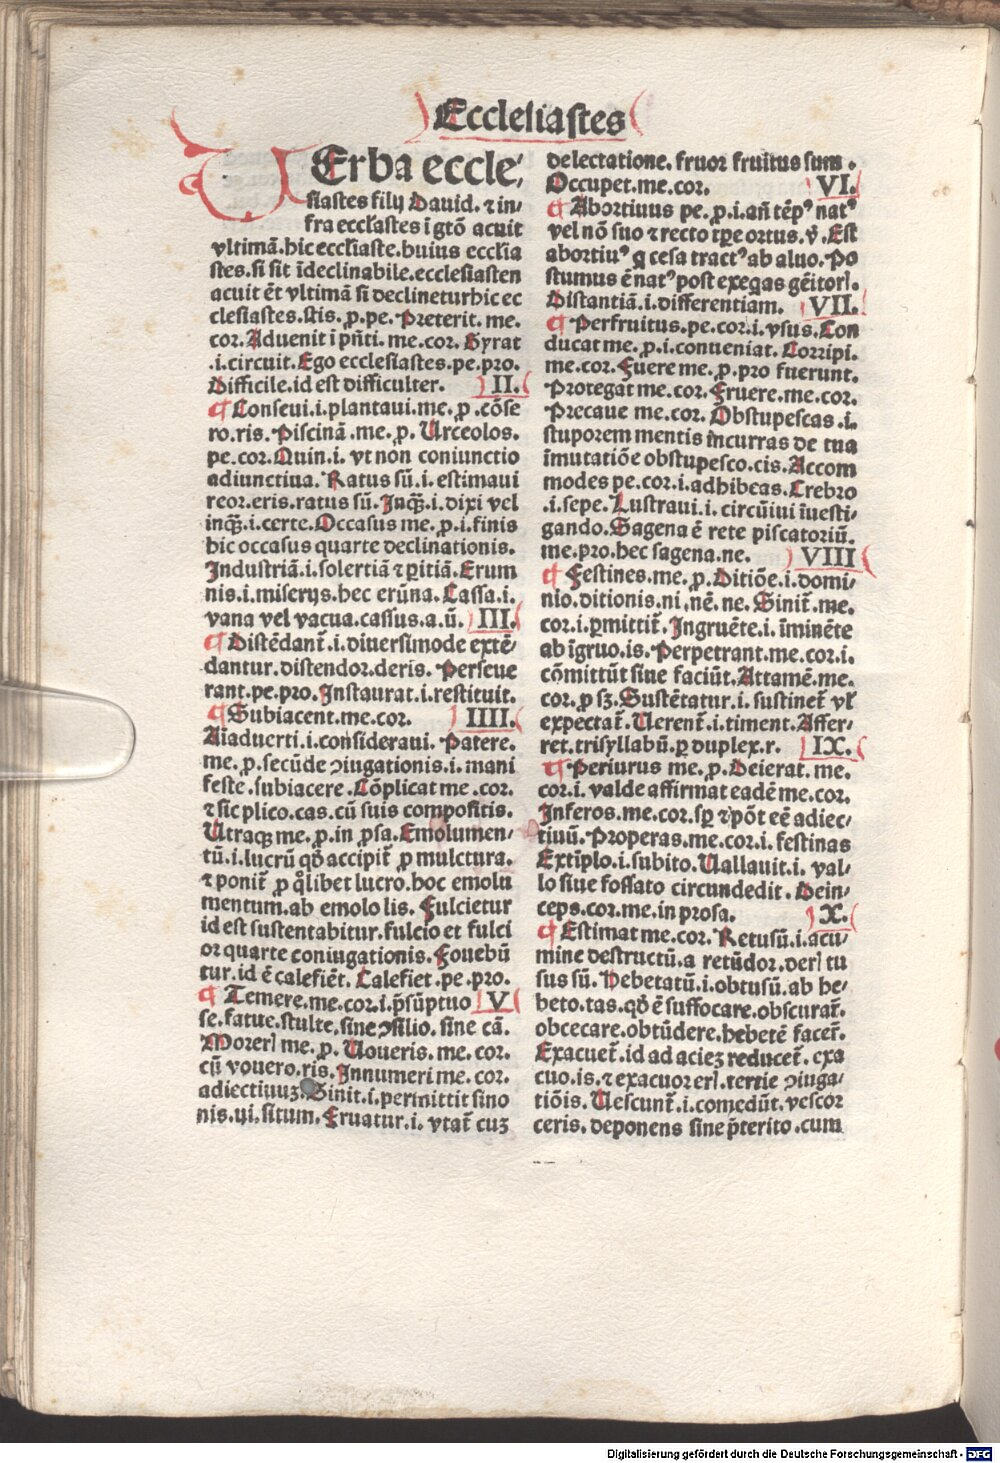 Eccleſiaſtes
VErba eccle⸗
ſiaſtes filij Dauid. ⁊ in⸗
fra eccl̄aſtes ī gtō acuit
vltimā. hic eccl̄iaſte. huius eccl̄ia
ſtes. ſi ſit īdeclinabile. eccleſiaſten
acuit ēt vltimā ſi declinetur hic ec
cleſiaſtes. ſtis. ꝓ. pe. Preterit. me.
cor. Aduenit ī pn̄ti. me. cor. Gyrat
.i. circuit. Ego eccleſiaſtes. pe. pro.
Difficile. id eſt difficulter. II.
¶ Conſeui .i. plantaui. me. ꝓ. cōſe
ro. ris. Piſcinā. me. ꝓ. Urceolos.
pe. cor. Quin .i. vt non coniunctio
adiunctiua. Ratus sū .i. eſtimaui
reor. eris. ratus sū. Inqꝫ̄ .i. dixi vel
inqꝫ̄ .i. certe. Occaſus me. ꝓ .i. finis
hic occaſus quarte declinationis.
Induſtriā .i. ſolertiā ⁊ ꝑitiā. Erum
nis .i. miſerijs. hec erūna. Caſſa .i.
vana vel vacua. caſſus. a. ū. III.
¶ Diſtēdant̄ .i. diuerſimode extē⸗
dantur. diſtendor. deris. Perſeue
rant. pe. pro. Inſtaurat .i. reſtituit.
¶ Subiacent. me. cor. IIII.
Aiaduerti .i. conſideraui. Patere.
me. ꝓ. ſecūde ꝯiugationis .i. mani
feſte. ſubiacere. Cōplicat me. cor.
⁊ ſic plico. cas. cū ſuis compoſitis.
Utraqꝫ me. ꝓ. in ꝓſa. Emolumen⸗
tū .i. lucrū qđ accipit̄ ꝓ mulctura.
⁊ ponit̄ ꝓ qͥlibet lucro. hoc emolu
mentum. ab emolo lis. Fulcietur
id eſt ſuſtentabitur. fulcio et fulci
or quarte coniugationis. Fouebū
tur. id ē calefiēt. Calefiet. pe. pro.
¶ Temere. me. cor .i. p̄ſūptuo V
ſe. fatue. ſtulte, ſine ꝯſilio. ſine cā.
Morerl me. ꝓ. Uoueris. me. cor.
cū vouero. ris. Innumeri me. cor.
adiectiuuꝫ. Sinit .i. permittit ſino
nis. ui. ſitum. Fruatur .i. vtat̄ cuꝫ
delectatione. fruor fruitus ſum.
Occupet. me. cor. VI.
¶ Abortiuus pe. ꝓ .i. an̄ tēpꝰ natꝰ
vel nō ſuo ⁊ recto tꝑe ortus. v̄. Eſt
abortiuꝰ q̄ ceſa tractꝰ ab aluo. Po
ſtumus ē natꝰ poſt exeqas gēitorl.
Diſtantiā .i. differentiam. VII.
¶ Perfruitus. pe. cor .i. vſus. Con
ducat me. ꝓ .i. conueniat. Corripi.
me. cor. Fuere me. ꝓ. pro fuerunt.
Protegat me. cor. Fruere. me. cor.
Precaue me. cor. Obſtupeſcas .i.
ſtuporem mentis incurras de tua
īmutatiōe obſtupeſco. cis. Accom
modes pe. cor .i. adhibeas. Crebro
.i. ſepe. Luſtraui .i. circūiui īueſti⸗
gando. Sagena ē rete piſcatoriū.
me. pro. hec ſagena. ne. VIII
¶ Feſtines. me. ꝓ. Ditiōe .i. domi⸗
nio. ditionis. ni. nē. ne. Sinit̄. me.
cor .i. ꝑmittit̄. Ingruēte .i. īminēte
ab īgruo. is. Perpetrant. me. cor .i.
cōmittūt ſiue faciūt. Attamē. me.
cor. ꝓ sꝫ. Suſtētatur .i. ſuſtinet̄ vl̄
expectat̄. Uerent̄ .i. timent. Affer⸗
ret. triſyllabū. ꝑ duplex. r. IX.
¶ Periurus me. ꝓ. Deierat. me.
cor .i. valde affirmat eadē me. cor.
Inferos. me. cor. sꝑ ⁊ pōt eē adiec⸗
tiuū. Properas. me. cor .i. feſtinas
Extīplo .i. ſubito. Uallauit .i. val⸗
lo ſiue foſſato circundedit. Dein⸗
ceps. cor. me. in proſa. X.
¶ Eſtimat me. cor. Retuſū .i. acu⸗
mine deſtructū. a retūdor. derl tu
ſus sū. Hebetatū .i. obtuſū. ab he⸗
beto. tas. qđ ē ſuffocare. obſcurar̄.
obcecare. obtūdere. hebetē facer̄.
Exacuet̄. id ad aciez reducet̄. exa
cuo. is. ⁊ exacuor erl. tertie ꝯiuga⸗
tiōis. Ueſcunt̄ .i. comedūt. veſcor
ceris. deponens ſine p̄terito. cum
Digitalisierung gefördert durch die Deutsche Forschungsgemeinschaft - DFG